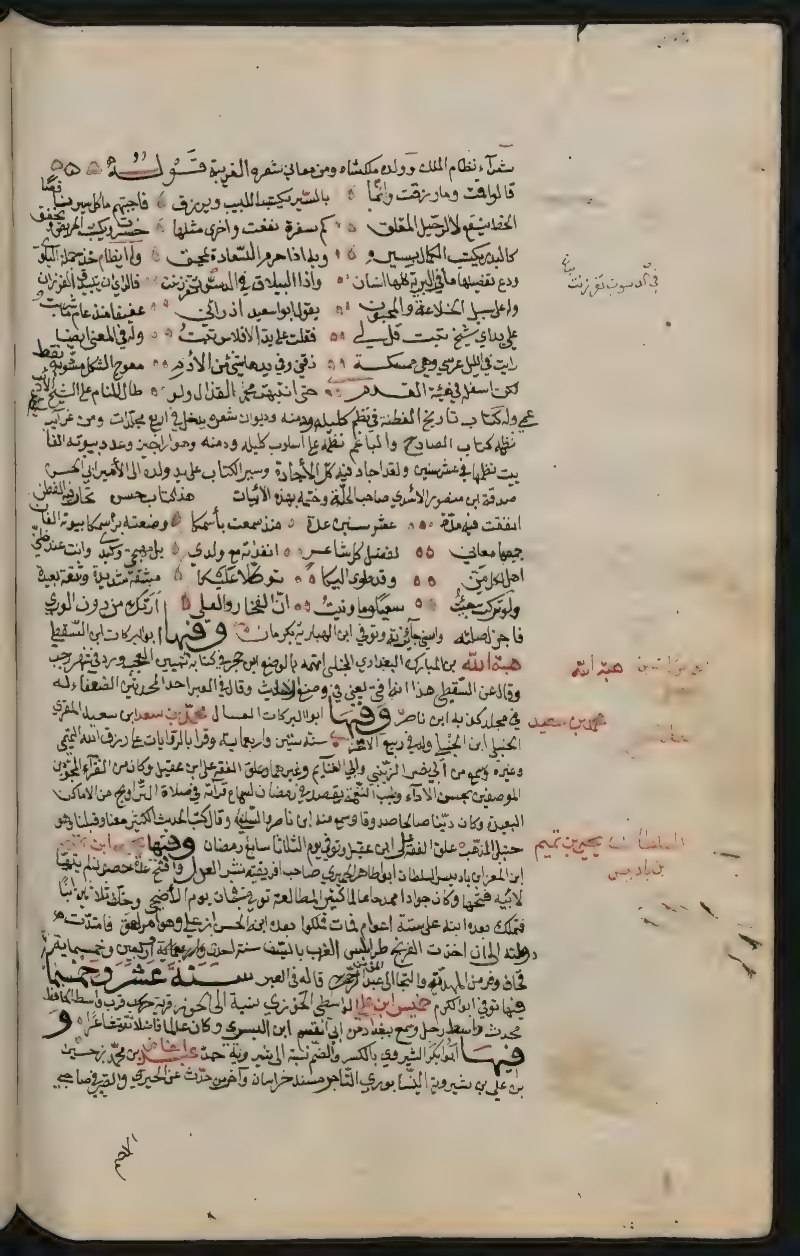 شعرآء نظام الملك وولده ملكشاه ومن معاني شعره الغريبة قوله
قالوا اقمت وما رزقت وانما بالسير يكتسب اللبيب ويرزق فاجبتهم ما كل سير نافعا
الحظ ينفع لا الرحيل المقلق كم سفرة نفعت واخرى مثلها خسرت ويكتسب الحريص ويخفق
كالبدر يكتسب الكمال بسيره وبه اذا حرم السعادة يمحق وله ايضا خذ جملة البلوى
ودع تفصيلها ما في البرية كلها انسان واذا البياذق في الدسوت تفرزنت فالراي ان يتبيذق الفرزان
في الدسوت تفرزنت
وله على سبيل الخلاعة والمجون يقول ابو سعيد اذ رآني عفيفا منذ عام ما شربت
على يد اي شيخ تبت قل لي فقلت على يد الافلاس تبت وله في المعنى ايضا
رايت في الليل عرسي وهي ممسكة ذقني وفي يدها شيء من الأدم معوج الشكل مسود به نقط
لكن اسفله في هيئة القدم حتى انتبهت محمر القذال ولو طال المنام على الشيخ الأديب
عمي وله كتاب تاريخ الفطنة في نظم كليله ودمنه وديوان شعره يدخل في اربع مجلدات ومن غرآيب
نظمه كتاب الصادح والباغم نظمه على اسلوب كليله ودمنه وهو اراجيز وعدد بيوته الفا
بيت نظمها في عشر سنين ولقد اجاد فيه كل الأجادة وسير الكتاب على يد ولده الى الأمير ابي الحسن
صدقة ابن منصور الأسدي صاحب الحلة وختمه بهذه الأبيات هذا كتاب حسن تحار فيه الفطن
انفقت فيه مدة عشر سنين عدة منذ سمعت باسمكا وضعته برسمكا بيوته الفان
جميعها معاني لفضل كل شاعر انفذته مع ولدي بل مهجتي وكبدي وانت عند ظني
اهل لكل من وقد طوى اليكا توكلا عليكا مشقة شديدة وشقة بعيدة
ولو تركت جيت سعيا وما ونيت ان الفخار والعلى ارثك من دون الورى
فاجزل صلته واسنى جائزته وتوفي ابن الهبارية بكرمان وفيها ابو البركات ابن السقطي
هبة الله بن المبارك البغدادي الحنبلي اتهمه بالوضع ابن حجر في كتابه تبيين العجب بما ورد في شهر رجب
هبة الله
وقال عن السقطي هذا انه آفة يعني في وضع الأحاديث وقال في العبر احد المحدثين الضعفاء له
في مجلد كذبه ابن ناصر وفيها ابو البركات العسال محمد بن سعد ابن سعيد المقري
محمد بن سعيد
الحنبلي ابن الحنبلي ولد في ربيع الآخر سنه ستين واربعمايه وقرا بالروايات على رزق الله التميمي
وغيره وسمع من أبي نصر الزينبي وابي الغنايم وغيرهما وعلق الفقه على ابن عقيل وكان من القرآء المجودين
الموصوفين بحسن الأدآء وطيب النغمة يقصد في رمضان لسماع قرآته في صلاة التراويح من الاماكن
البعيدة وكان دينا صالحا صدوقا وسمع منه ابن ناصر والسلفي وقال كتب الحديث الكثير معنا وقبلنا وهو
حنبلي المذهب علق الفقه على ابن عقيل وتوفي يوم الثلاثا سابع رمضان وفيها
السلطان يحيى بن تميم
بن باديس
ابن المعز ابن باديس السلطان ابو طاهر الحميري صاحب افريقيه نشر العدل وافتتح عدة حصون لم يتهيا
لأبيه فتحها وكان جوادا ممدحا عالما كثير المطالعة توفي فجأة يوم الأضحى وخلف ثلاثين ابنا
فتملك بعده ابنه علي ستة اعوام فمات فملكوا بعده ابنه الحسن ابن علي وهو مراهق فامتدت
دولته الى ان اخذت الفرنج طرابلس الغرب بالسيف سنة احدى واربعين وخمسمايه
فخاف وفر من المهدية والتجا الى عبد المؤمن قاله في العبر سنة عشر وخمسمايه
فيها توفي ابو الكرم خميس ابن علي الواسطي الحوزي نسبة الى الحوز قرية قرب واسط الحافظ
محدث واسط رحل وسمع ببغداد من ابي القسم ابن البسري وكان عالما فاضلا ثقة شاعرا و
فيها ابو بكر الشيروي بالكسر والضم نسبة الى شيرويه جد عبد الغفار بن محمد بن حسين
بن علي بن شيرويه النيسابوري التاجر مسند خراسان وآخر من حدث عن الحيري والصيرفي صاحبي
الاصم